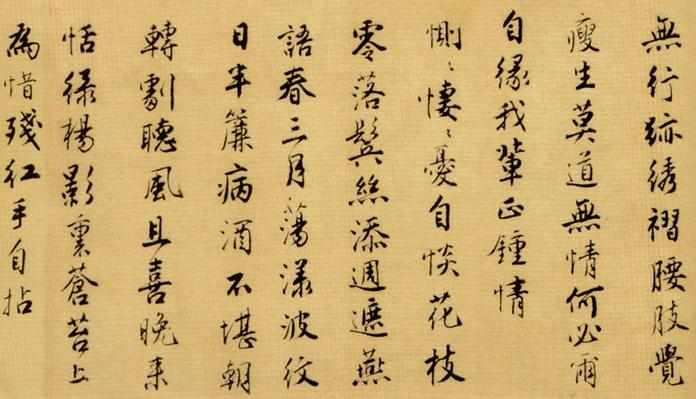 無行跡綉褶腰肢覺
瘦生莫道無情何必爾
自緣我輩正鍾情
惻〻悽〻憂自惔花枝
零落鬢絲添週遮燕
語春三月蕩漾波紋
日半簾病酒不堪朝
轉劇聽風且喜晚来
恬緑楊影裏蒼苔上
為惜殘紅手自拈